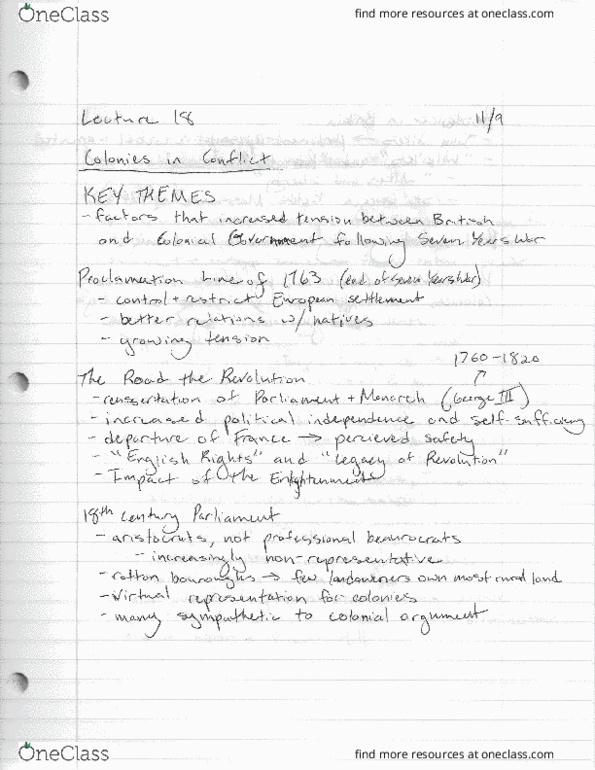 OneClass find more resources at oneclass.com
Lecture 18 11/9
Colonies in Conflict
KEY THEMES
- factors that increased tension between British
and Colonial Government following Seven Years War
Proclamation Line of 1763 (end of Seven Years War)
- control + restrict European settlement
- better relations w/ natives
- growing tension
1760-1820
The Road the Revolution
- reassertation of Parliament + Monarch (George III)
- increased political independence and self-sufficiency
- departure of France → percieved safety
- "English Rights" and "Legacy of Revolution"
- Impact of the Enlightenment
18th Century Parliament
- aristocrats, not professional beaurocrats
- increasingly non-representative
- rotton bouroughs → few landowners own most rural land
- Virtual representation for colonies
- many sympathetic to colonial argument
OneClass find more resources at oneclass.com